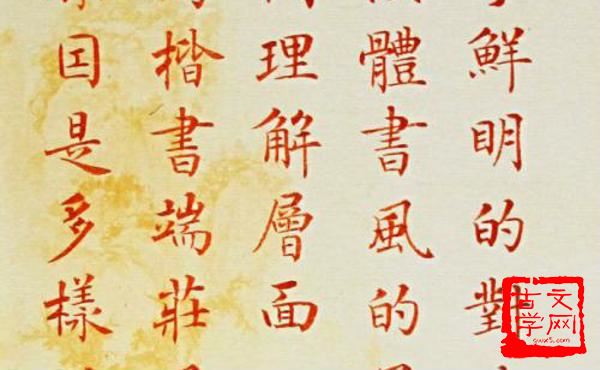 鮮明的對
體書風的
理解層面
楷書端莊
因是多樣
古文
学网
gwx5.com